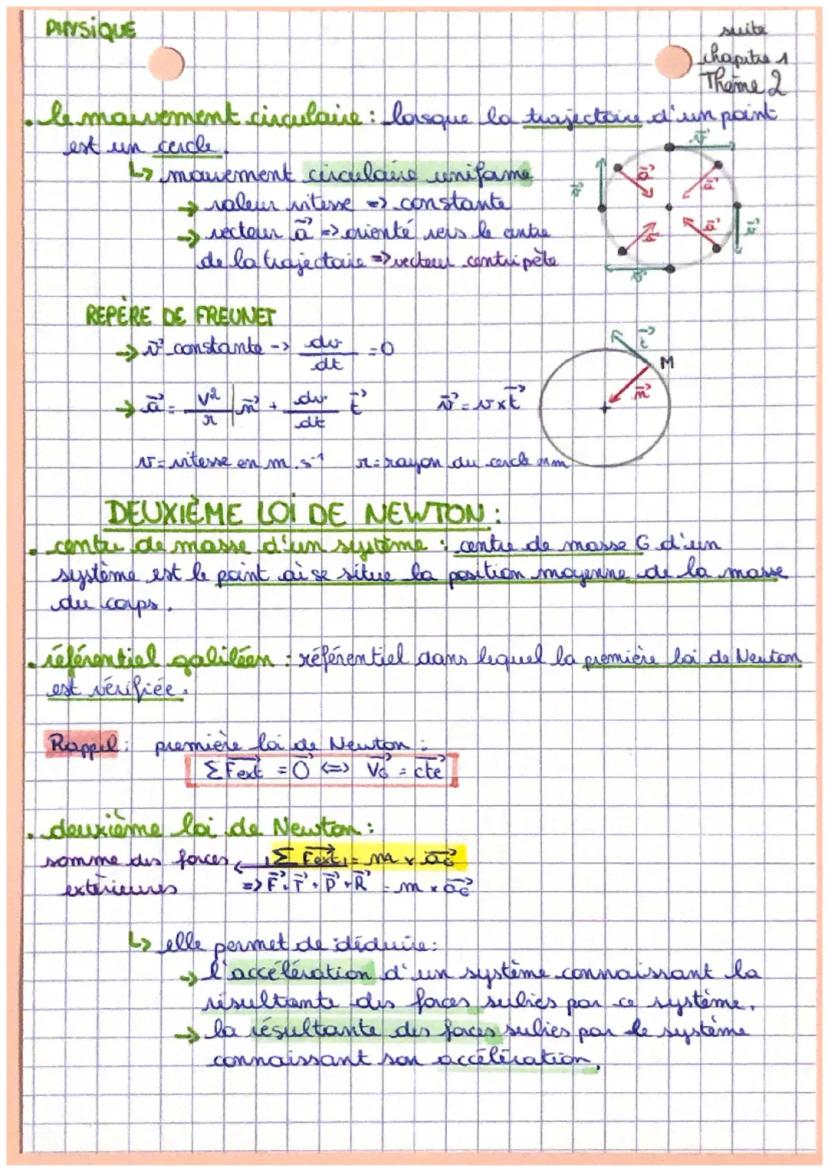 PHYSIQUE
suite
chapitre 1
Thème 2
. le mouvement circulaire : lorsque la trajectoire d'un point
est un cercle.
↳ mouvement circulaire uniforme
→ valeur vitesse => constante
→ vecteur a⃗ => orienté vers le centre
de la trajectoire => vecteur centripète
v⃗
a⃗
a⃗
v⃗
v⃗
a⃗
a⃗
v⃗
REPÈRE DE FREUNET
→ v⃗ constante -> dv/dt = 0
→ a⃗ = v²/r | n⃗ + dv/dt t⃗
v⃗ = v x t⃗
t⃗
M
n⃗
v = vitesse en m.s⁻¹ r = rayon du cercle en m
DEUXIÈME LOI DE NEWTON :
. centre de masse d'un système : centre de masse G d'un
système est le point où se situe la position moyenne de la masse
du corps.
. référentiel galiléen : référentiel dans lequel la première loi de Newton
est vérifiée.
Rappel : première loi de Newton :
Σ F⃗ext = 0⃗ <=> V⃗G = cte⃗
. deuxième loi de Newton :
somme des forces ← Σ F⃗ext = m x a⃗G
extérieures => F⃗ + T⃗ + P⃗ + R⃗ = m x a⃗G
↳ elle permet de déduire :
→ l'accélération d'un système connaissant la
résultante des forces subies par ce système.
→ la résultante des forces subies par le système
connaissant son accélération.